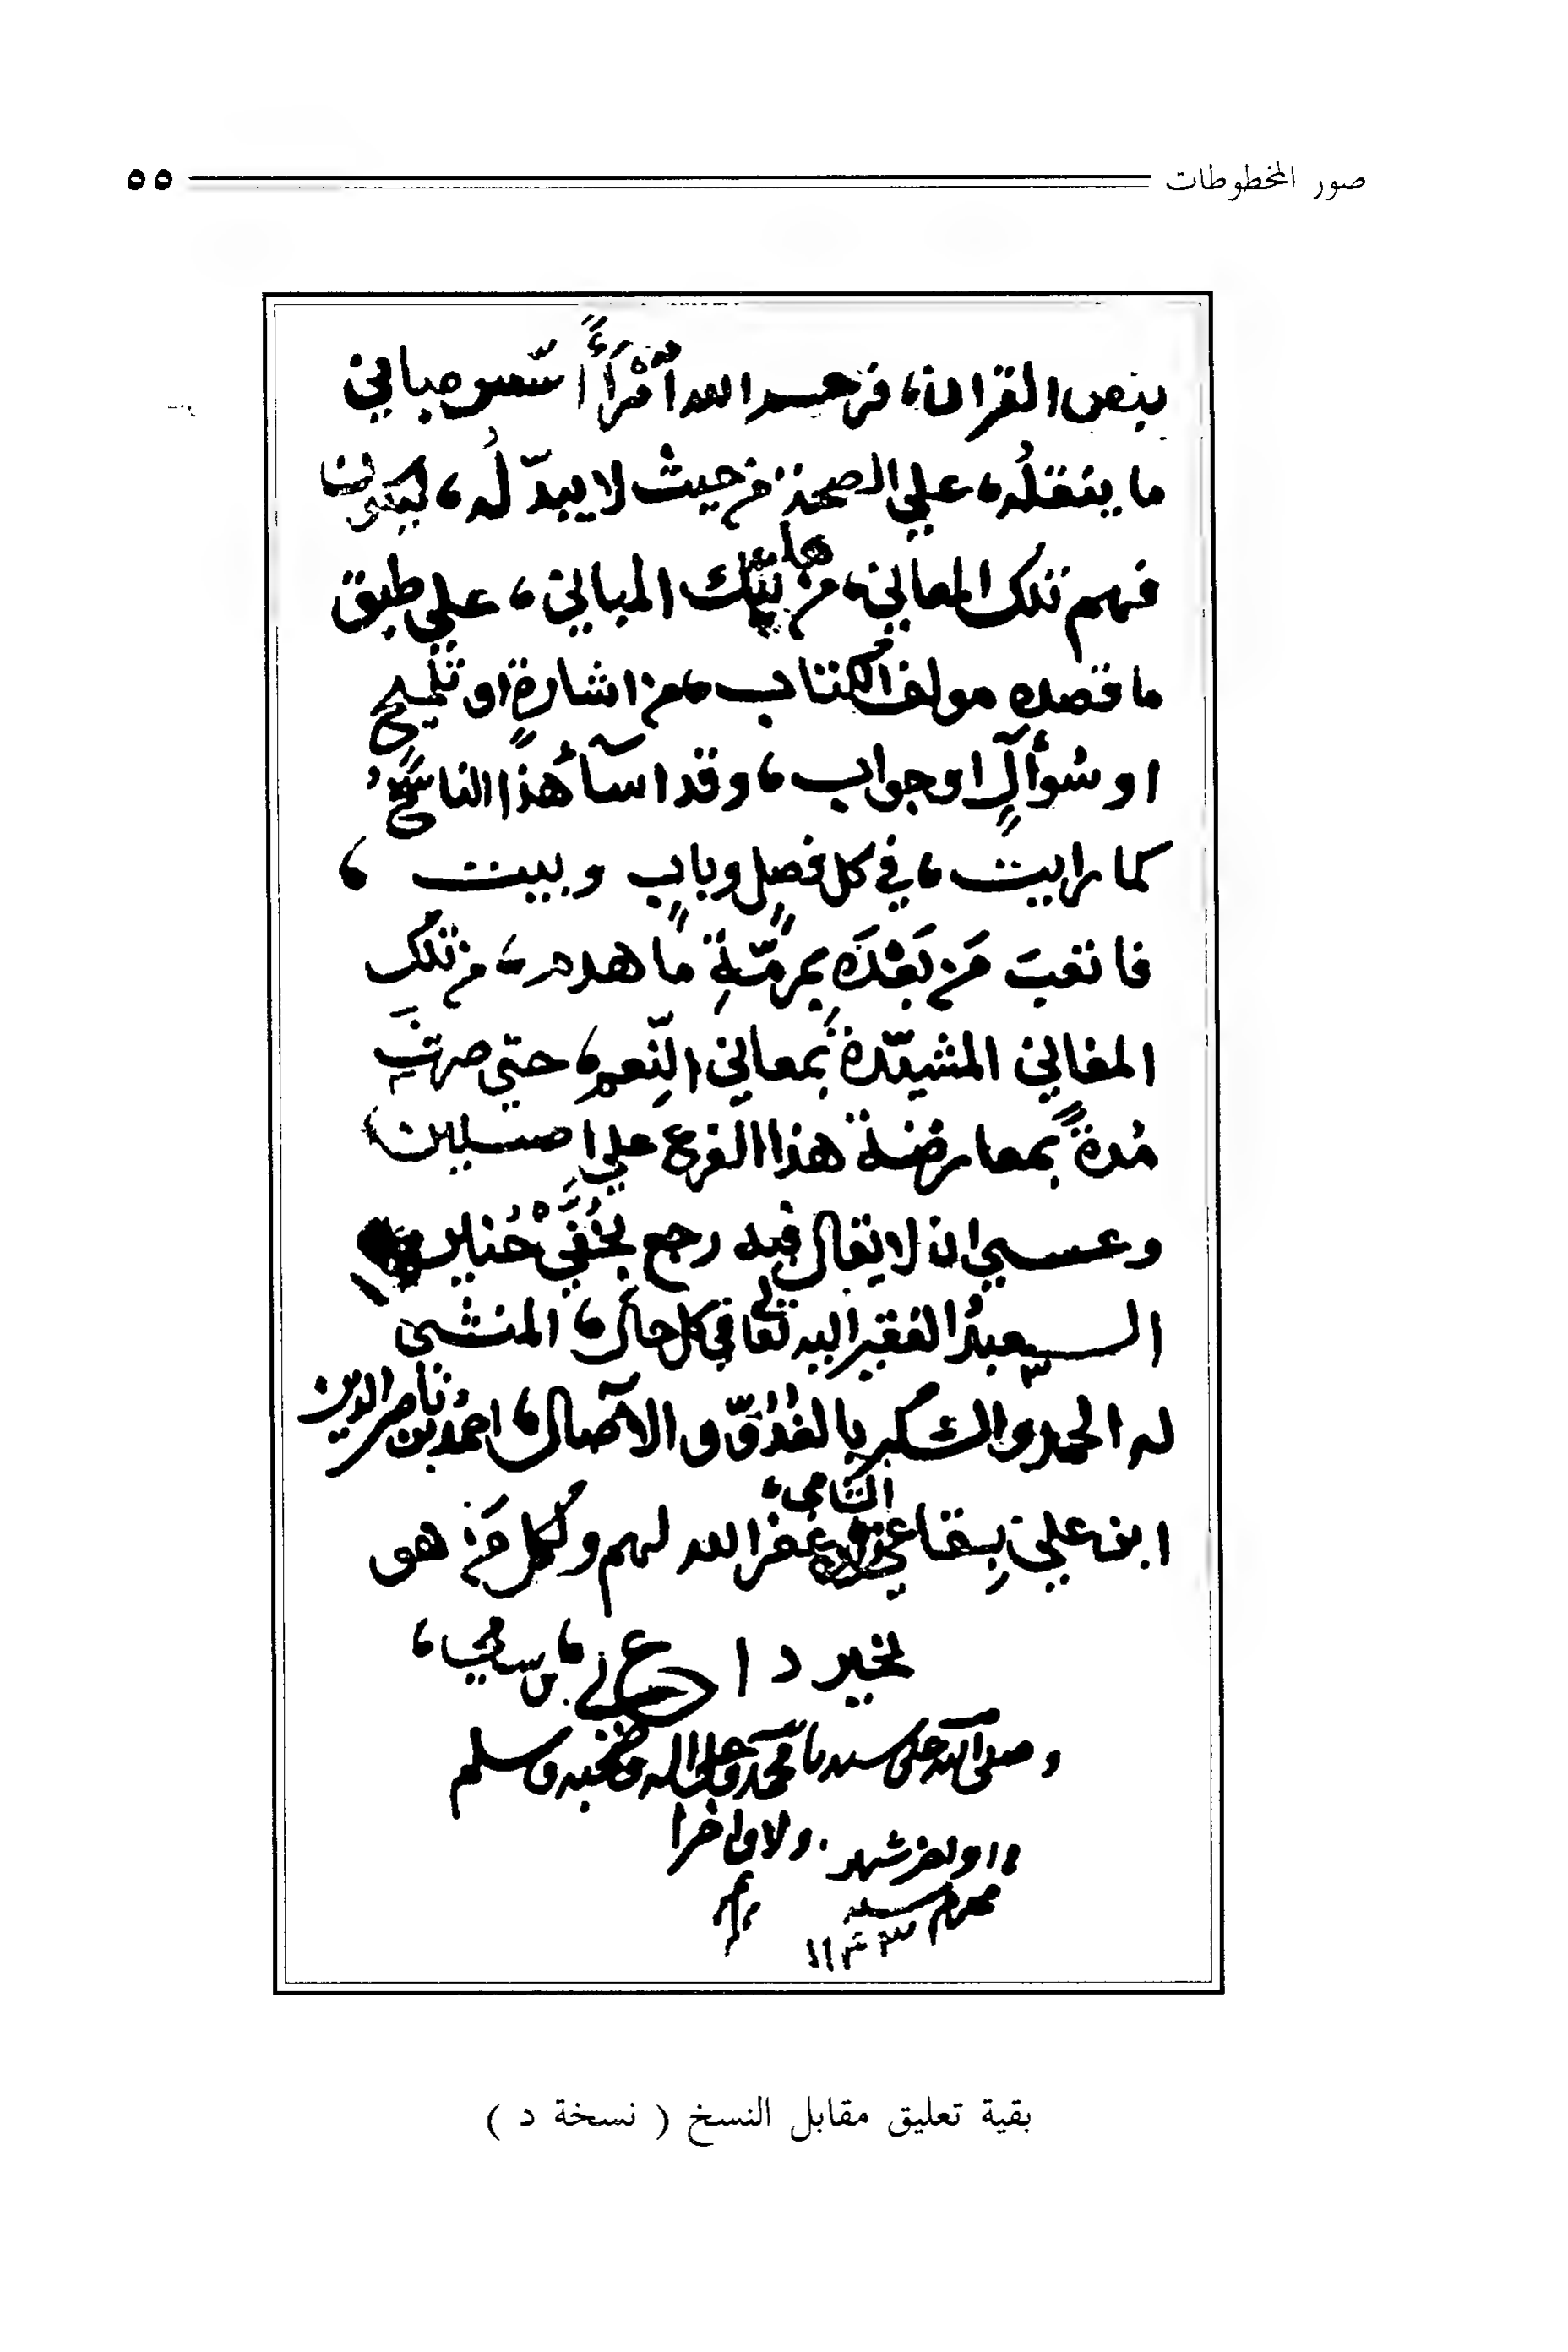 صور المخطوطات ٥٥
بنص القران، فرحم الله أمْرَأً اسّس مباني
ما ينقلُه، علي الصحة، من حيث لا يبدّ لُه، ليكون
فهم تلك المعاني، من هاتيك المباني، علي طبق
ما قصده مولف الكتاب، من اشارةٍ او تلميح
او سُؤالٍ او جواب، وقد اسآءَ هٰذا الناسخُ
كما رايت، في كل فصلٍ وبابٍ وبيت،
فاتعبَ مَن بَعْدَه بمرمّةِ ما هدم، من تلك
المغاني المشيّدة بمعاني النِّعم، حتي صرفت
مُدةً بمعارضة هذا الفرع علي اصلين،
وعسي ان لا يقال فيه رجع بخُفَّيْ حُنين
السيعبدُ الفقير اليه تعالي في كل حال، المنشي
له الحمد والشكر بالغُدُوّ والآصال، احمدُ بن ناصر الدين
ابن علي البقاعي الشامي، غفر الله لهم ولكل مَن هو
بخير داع لي،
وصلى الله على سيدنا محمد وعلى اله وصحبه وسلم
اولا واخرا
اواخر شهر
محرم سنه
١١٤٣
بقية تعليق مقابل النسخ ( نسخة د )